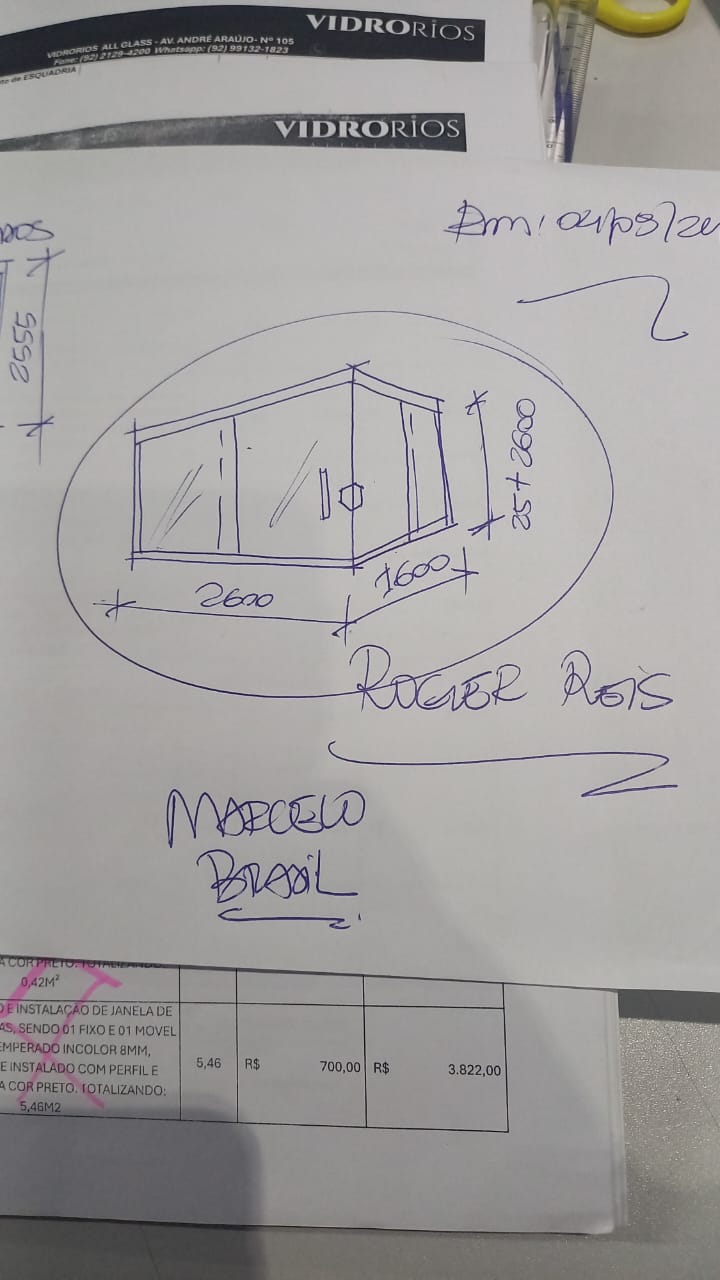 VIDRORIOS
VIDRORIOS ALL GLASS - AV. ANDRÉ ARAÚJO- Nº 105
Fone: (92) 2129-4200 Whatsapp: (92) 99132-1823
ESQUADRIA
VIDRORIOS
2555
25+2600
2600
1600
ROGER REIS
MARCELO
BRASIL
A COR PRETO. TOTALIZANDO:
0,42M²
E INSTALAÇÃO DE JANELA DE
AS, SENDO 01 FIXO E 01 MOVEL
EMPERADO INCOLOR 8MM,
E INSTALADO COM PERFIL E
A COR PRETO. TOTALIZANDO:
5,46M2
5,46 R$ 700,00 R$ 3.822,00